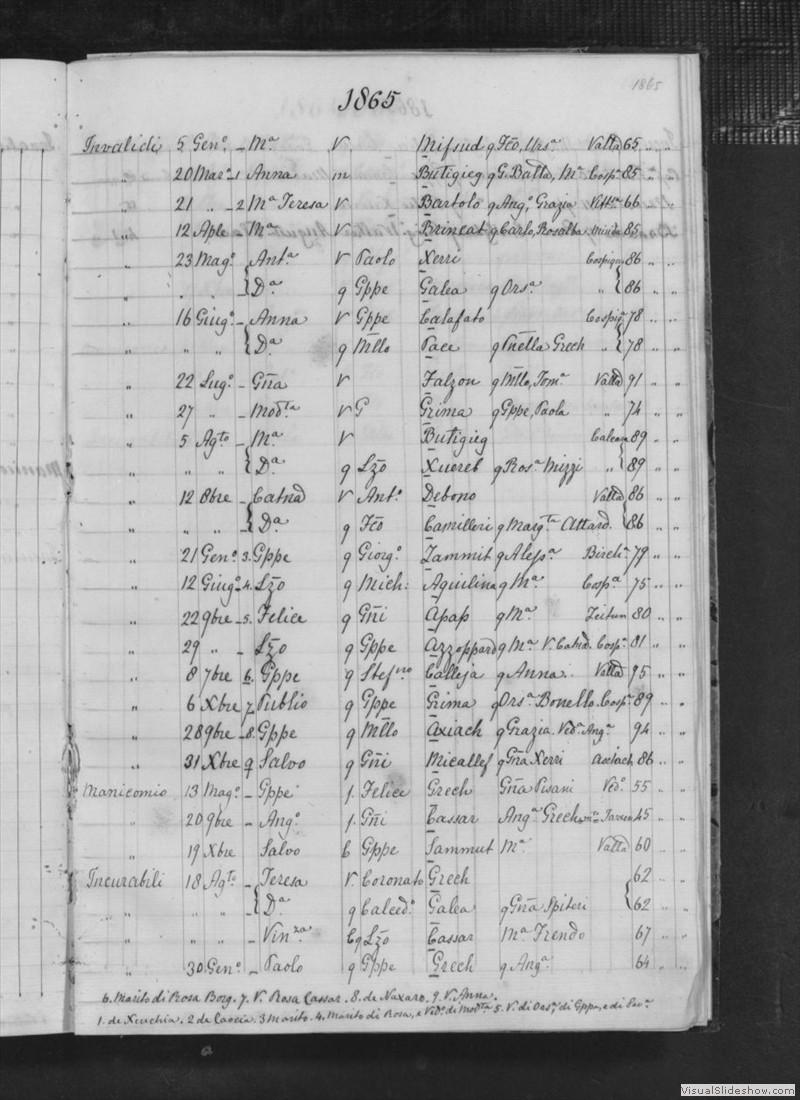 1865
1865
Invalidi 5 Genº. - Mª. V. Mifsud q Fcõ, Ursª Vallta 65 " "
" 20 Marº. 1 Anna m Butigieg q G. Batta, Mª Cospª 85 " "
" 21 " - 2 Mª Teresa V Bartolo q Angº, Grazia Vittª 66 " "
" 12 Aple - Mª. V Brincat q Carlo, Rosalba 85 " "
" 23 Magº. - Antª V Paolo Xerri Cospiqua 86 " "
" " " - Dª q Gppe Galea q Orsª " 86 " "
" 16 Giugº. - Anna V Gppe Calafato Cospiqª 78 " "
" " " - Dª q Mllo Pace q Pñella Grech " 78 " "
" 22 Lugº - Gña V Falzon q Mllo, Tomª Vallta 91 " "
" 27 " - Modtª V G Grima q Gppe, Paola " 74 " "
" 5 Agto - Mª. V Butigieg 89 " "
" " " - Dª q Lzo Xuereb q Rosª Mizzi " 89 " "
" 12 8bre - Catnа V Antº Debono Vallta 86 " "
" " " - Dª q Fcõ Camilleri q Margta Attard. 86 " "
" 21 Genº 3. Gppe q Giorgº Zammit q Alesª Birchª 79 " "
" 12 Giugº. 4. Lzo q Mich: Aquilina q Mª Cospª 75 " "
" 22 9bre - 5. Felice q Gñi Apap q Mª Zeitun 80 " "
" 29 " - Lzo q Gppe Azzoppard q Mª V Catnа. Cospª 81 " "
" 8 7bre 6. Gppe q Stefno Calleja q Anna. Vallta 95 " "
" 6 Xbre 7. Publio q Gppe Grima q Orsª Bonello. Cospª 89 " "
" 28 9bre - 8. Gppe q Mllo Axiach q Grazia. Vedº Angª 94 " "
" 31 Xbre 9 Salvo q Gñi Micallef q Gña Xerri Axiach 86 " "
Manicomio 13 Magº. - Gppe f. Felice Grech Gña Pisani Vedº 55 " "
" 20 9bre - Angº. f. Gñi Cassar Angª Grech 45 " "
" 19 Xbre Salvo C Gppe Sammut Mª Vallta 60 " "
Incurabili 18 Agto - Teresa V. Coronato Grech 62 " "
" " " - Dª q Calcedº Galea q Gña Spiteri 62 " "
" " " - Vinza C q Lzo Cassar Mª Trendo 67 " "
" 30 Genº. - Paolo q Gppe Grech q Angª 64 " "
6. Marito di Rosa Borg. 7. V. Rosa Cassar. 8. de Naxaro. 9. V. Anna.
1. de Xeuchia. 2 de Caccia. 3 Marito. 4. Marito di Rosa, e Vedº di Modta 5. V. di Orsª, di Gppa, e di
VisualSlideshow.com